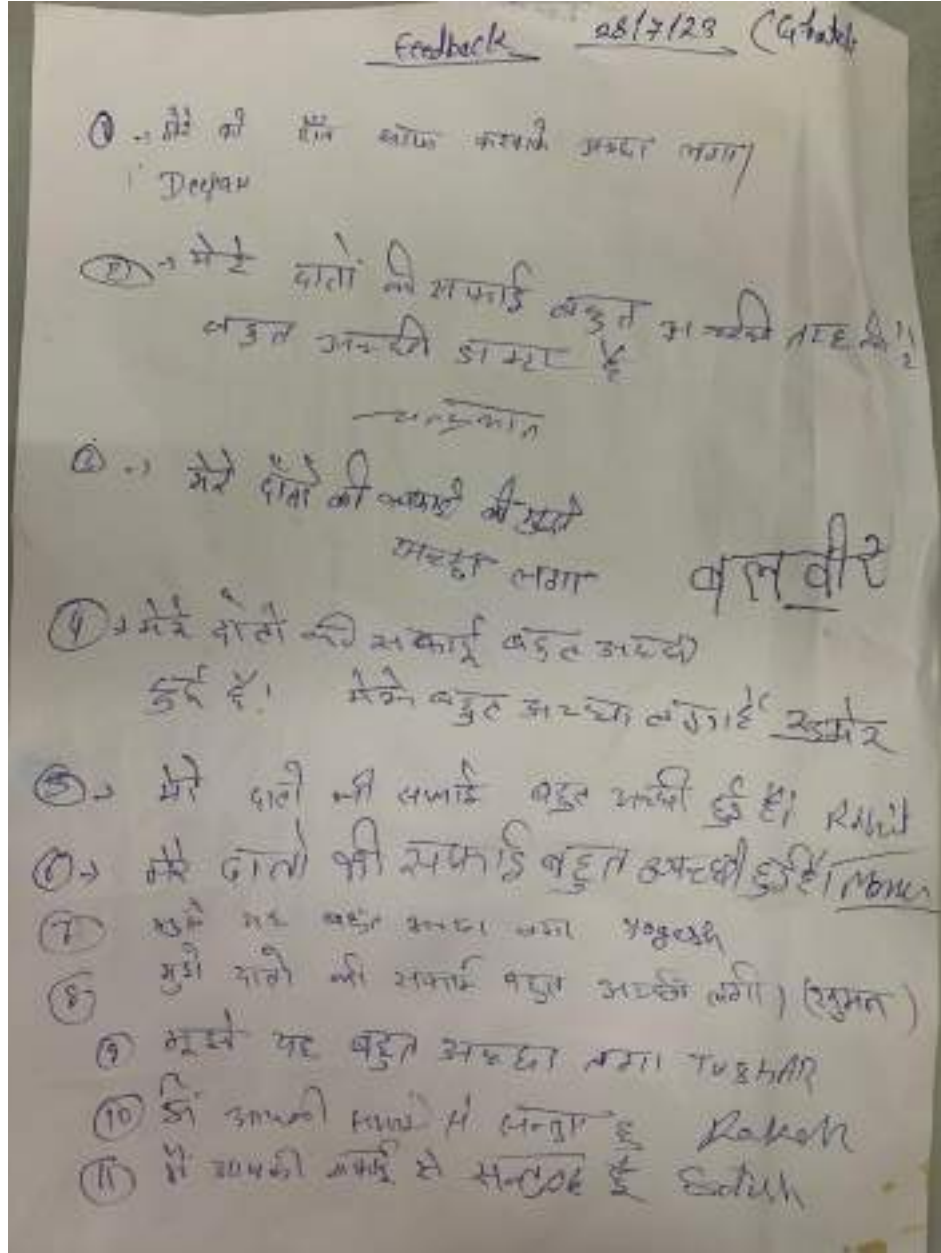 Feedback 28/7/23
① → मेरे को दाँत साफ करवाके अच्छा लगा।
Deepak
② → मेरे दातों की सफाई बहुत अच्छी तरह की।
बहुत अच्छी डाक्टर है
③ → मेरे दाँतों की सफाई की मुझे
अच्छा लगा बलवीर
④ → मेरे दांतो की सफाई बहुत अच्छी
हुई है। मेरेको बहुत अच्छा लगा है
⑤ → मेरे दातो की सफाई बहुत अच्छी हुई है। Rohit
⑥ → मेरे दातो की सफाई बहुत अच्छी हुई है। Monu
⑦ मुझे यह बहुत अच्छा लगा Yogesh
⑧ मुझे दातो की सफाई बहुत अच्छी लगी। (सुमन)
⑨ मुझे यह बहुत अच्छा लगा TUSHAR
⑩ मैं आपकी सफाई से सन्तुष्ट हूँ Rakesh
⑪ मैं आपकी सफाई से हूँ Satish